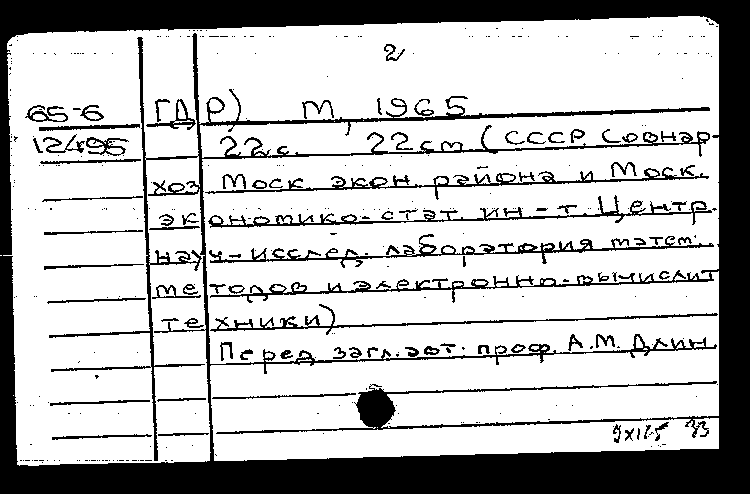 2
65-6 ГДР). М., 1965.
12495 22 с. 22 см (СССР. Совнар-
хоз Моск. экон. района и Моск.
экономико-стат. ин-т. Центр.
науч-исслед. лаборатория матем.
методов и электронно-вычислит
техники)
Перед загл. авт: проф. А.М. Длин.